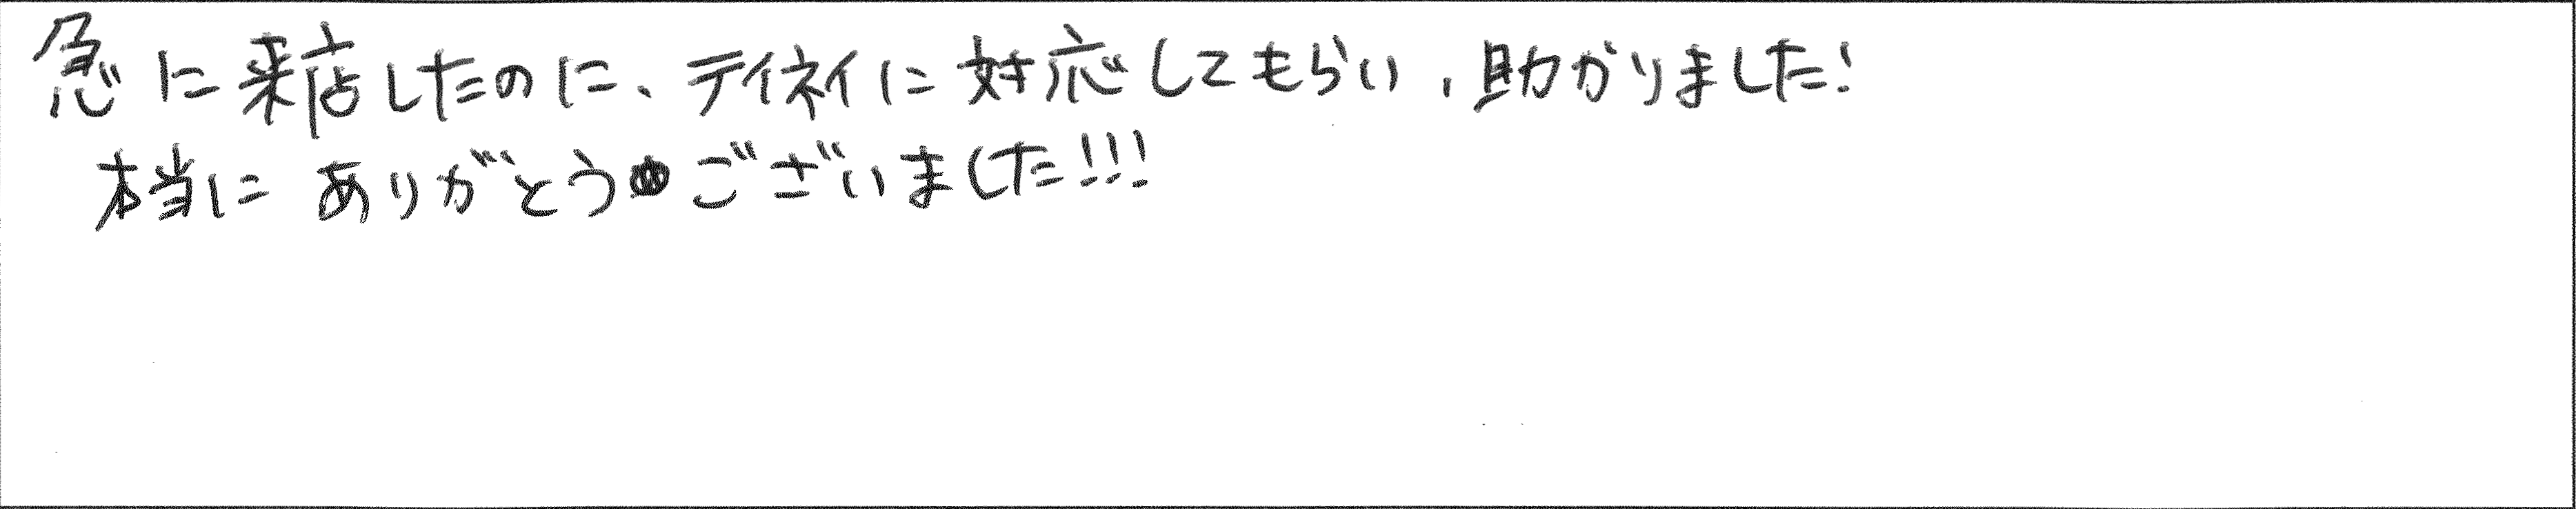 急に来店したのに、テイネイに対応してもらい、助かりました!
本当にありがとうございました!!!